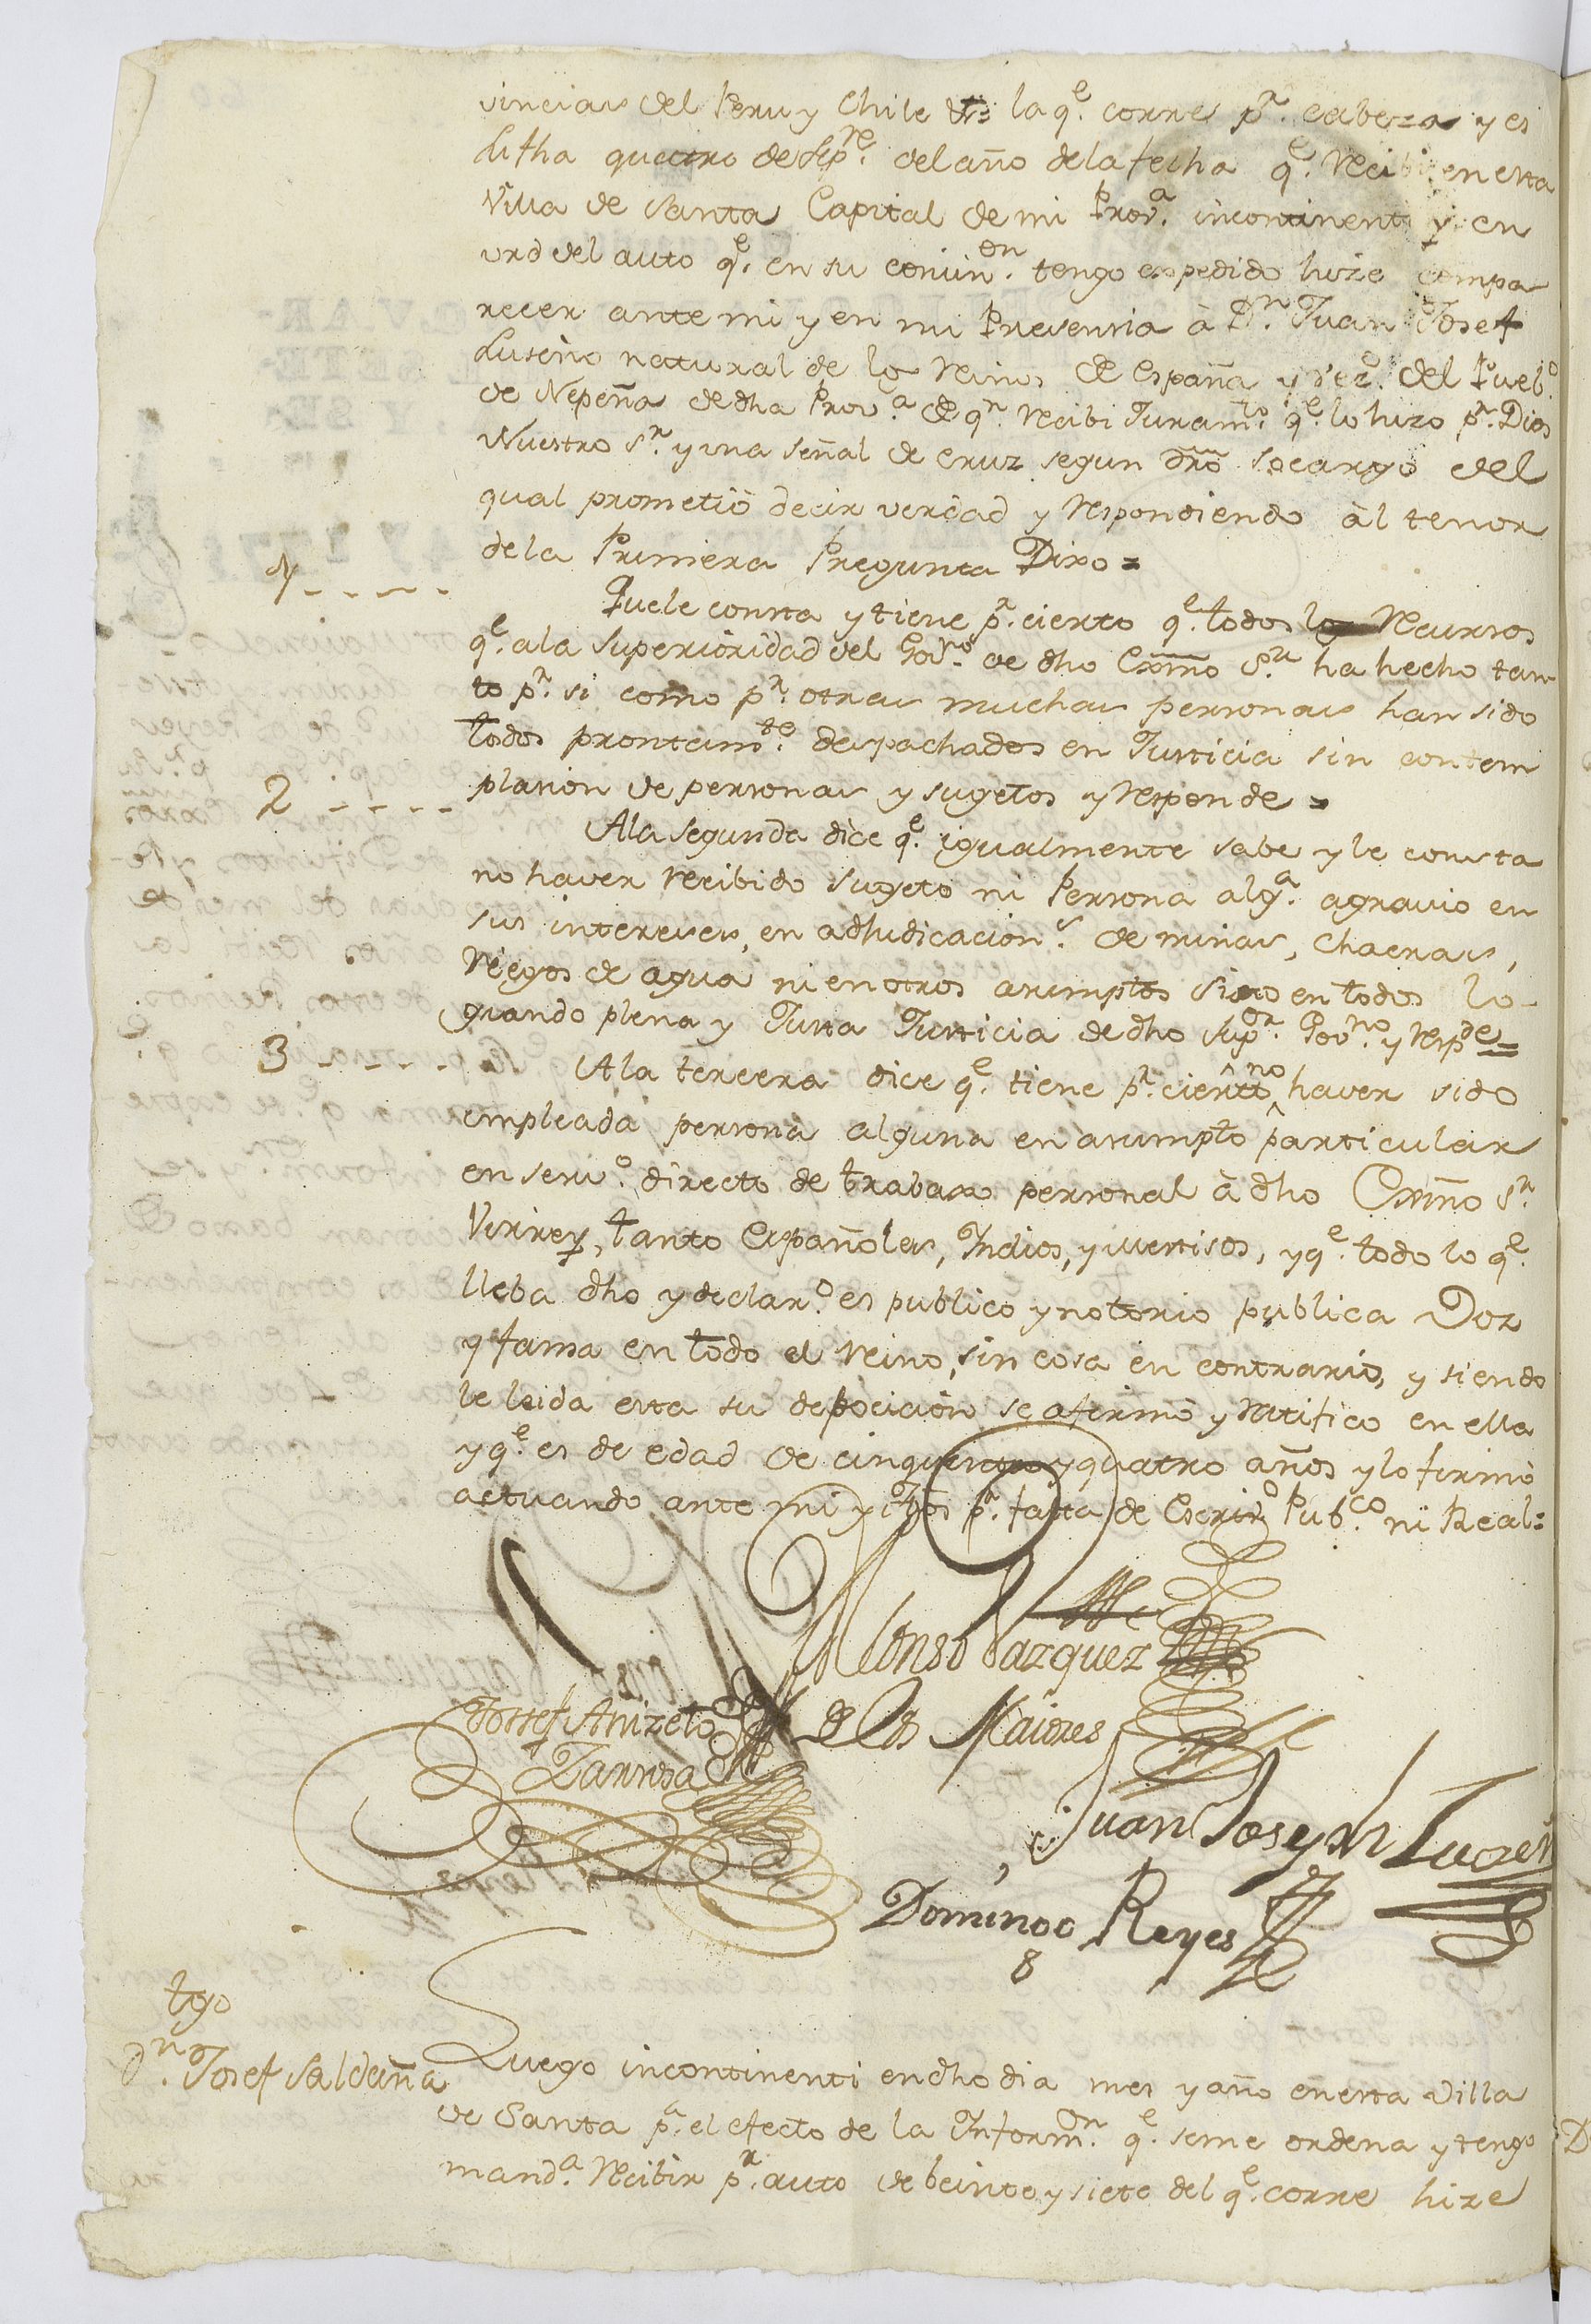 vincias del Peru y Chile &ª la q.e corre p.r cabeza y es
su fha quatro de Sep.re del año de la fecha q.e Recibi en esta
Villa de Santa Capital de mi Prov.a incontinenti y en
vrd del auto q.e en su conun.on tengo expedido hize compa
recer ante mi y en mi Presensia à D.n Juan Josef
Luseno natural de los Reinos de España y vez.o del Pueb.o
de Nepeña de dha Prov.a de q.n Recibi Juram.to q.e lo hizo p.r Dios
Nuestro S.r y una señal de cruz segun dro so cargo del
qual prometiò decir verdad y Respondiendo àl tenor
de la Primera Pregunta Dixo =
1 - - - - -
Que le consta y tiene p.r cierto q.e todos los Recursos
q.e a la superioridad del Gov.no de dho Exmo S.or ha hecho tan
to p.r si como p.r otras muchas personas han sido
todos prontam.te despachados en Justicia sin contem
2 - - - -
plasion de personas y sugetos y Responde =
A la segunda dice q.e igualmente sabe y le consta
no haver Recibido sugeto ni Persona alg.a agravio en
sus intereses, en adhudicacion.s de minas, Chacras,
Riegos de agua ni en otros asumptos sino en todos lo
grando plena y Justa Justicia de dho Sup.or Gov.no y Resp.de =
3 - - - - -
A la tercera dice q.e tiene p.r cierto no haver sido
empleada persona alguna en asumpto particular
en serv.o directo de trabaxo personal à dho Exmo S.r
Virrey, tanto Españoles, Indios, y mestisos, y q.e todo lo q.e
lleba dho y declar.o es publico y notorio publica Voz
y fama en todo el Reino, sin cosa en contrario, y siendo
le leida esta su deposicion se afirmò y Ratifico en ella
y q.e es de edad de cinquenta y quatro años y lo firmò
actuando ante mi y tgos p.r falta de Escriv.o Pub.co ni Real =
Alonso Vazquez
de los Maiores
Jossef Anizeto
Larrosa
Juan Joseph Luzen
Domingo Reyes
tgo
D.n Josef Saldaña
Luego incontinenti en dho dia mes y año en esta Villa
de Santa p.a el efecto de la Inform.on q.e se me ordena y tengo
mand.a Recibir p.r auto de beinte y siete del q.e corre hize